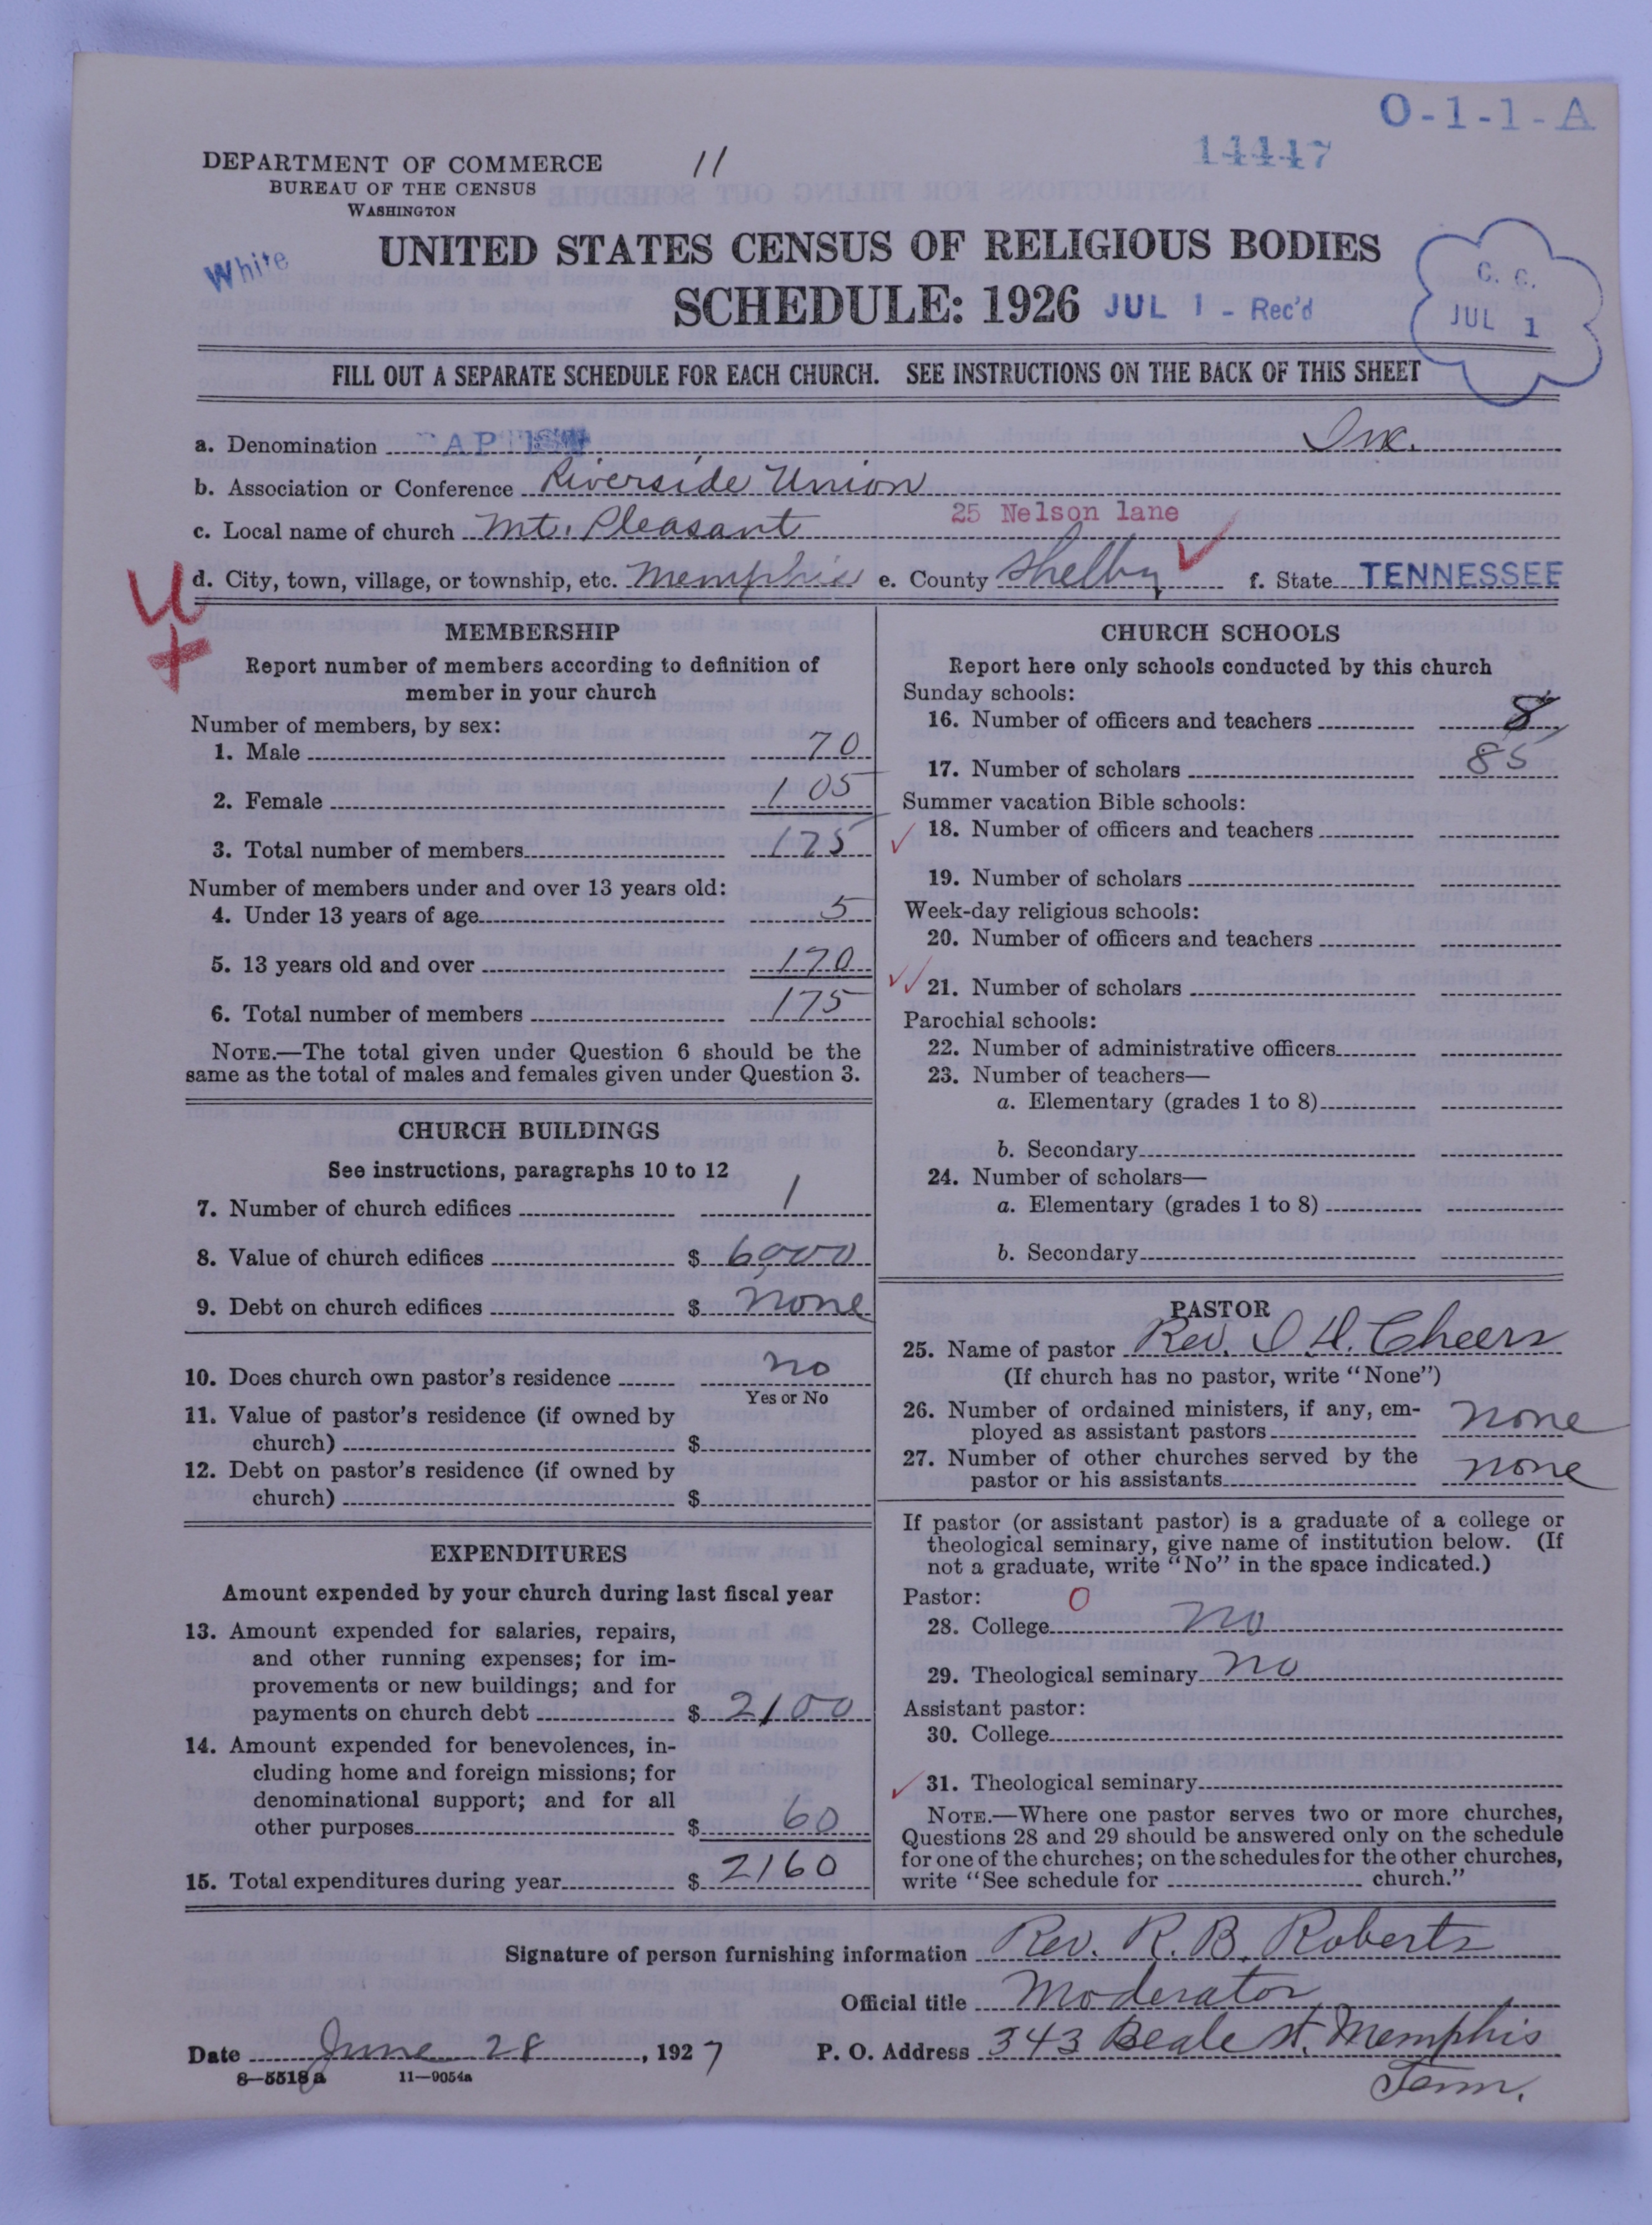 O-1-1-A
14447
11
DEPARTMENT OF COMMERCE
BUREAU OF THE CENSUS
WASHINGTON
White
UNITED STATES CENSUS OF RELIGIOUS BODIES
SCHEDULE: 1926 JUL 1 - Rec'd
C. C.
JUL 1
FILL OUT A SEPARATE SCHEDULE FOR EACH CHURCH. SEE INSTRUCTIONS ON THE BACK OF THIS SHEET
a. Denomination
b. Association or Conference Riverside Union
25 Nelson lane
c. Local name of church Mt. Pleasant
d. City, town, village, or township, etc. Memphis e. County Shelby f. State TENNESSEE
MEMBERSHIP
Report number of members according to definition of
member in your church
Number of members, by sex:
1. Male 70
2. Female 105
3. Total number of members 175
Number of members under and over 13 years old:
4. Under 13 years of age 5
5. 13 years old and over 170
6. Total number of members 175
NOTE.—The total given under Question 6 should be the
same as the total of males and females given under Question 3.
CHURCH BUILDINGS
See instructions, paragraphs 10 to 12
7. Number of church edifices 1
8. Value of church edifices $ 6,000
9. Debt on church edifices $ none
10. Does church own pastor's residence no
Yes or No
11. Value of pastor's residence (if owned by
church) $
12. Debt on pastor's residence (if owned by
church) $
EXPENDITURES
Amount expended by your church during last fiscal year
13. Amount expended for salaries, repairs,
and other running expenses; for im-
provements or new buildings; and for
payments on church debt $ 2100
14. Amount expended for benevolences, in-
cluding home and foreign missions; for
denominational support; and for all
other purposes $ 60
15. Total expenditures during year $ 2160
CHURCH SCHOOLS
Report here only schools conducted by this church
Sunday schools:
16. Number of officers and teachers 8
17. Number of scholars 85
Summer vacation Bible schools:
18. Number of officers and teachers
19. Number of scholars
Week-day religious schools:
20. Number of officers and teachers
21. Number of scholars
Parochial schools:
22. Number of administrative officers
23. Number of teachers—
a. Elementary (grades 1 to 8)
b. Secondary
24. Number of scholars—
a. Elementary (grades 1 to 8)
b. Secondary
PASTOR
25. Name of pastor Rev. I H. Cheers
(If church has no pastor, write "None")
26. Number of ordained ministers, if any, em-
ployed as assistant pastors none
27. Number of other churches served by the
pastor or his assistants none
If pastor (or assistant pastor) is a graduate of a college or
theological seminary, give name of institution below. (If
not a graduate, write "No" in the space indicated.)
Pastor: 0
28. College no
29. Theological seminary no
Assistant pastor:
30. College
31. Theological seminary
NOTE.—Where one pastor serves two or more churches,
Questions 28 and 29 should be answered only on the schedule
for one of the churches; on the schedules for the other churches,
write "See schedule for church."
Signature of person furnishing information Rev. R. B. Roberts
Official title Moderator
Date June 28, 1927 P. O. Address 343 Beale st. Memphis
Tenn.
8—5518a 11—9054a